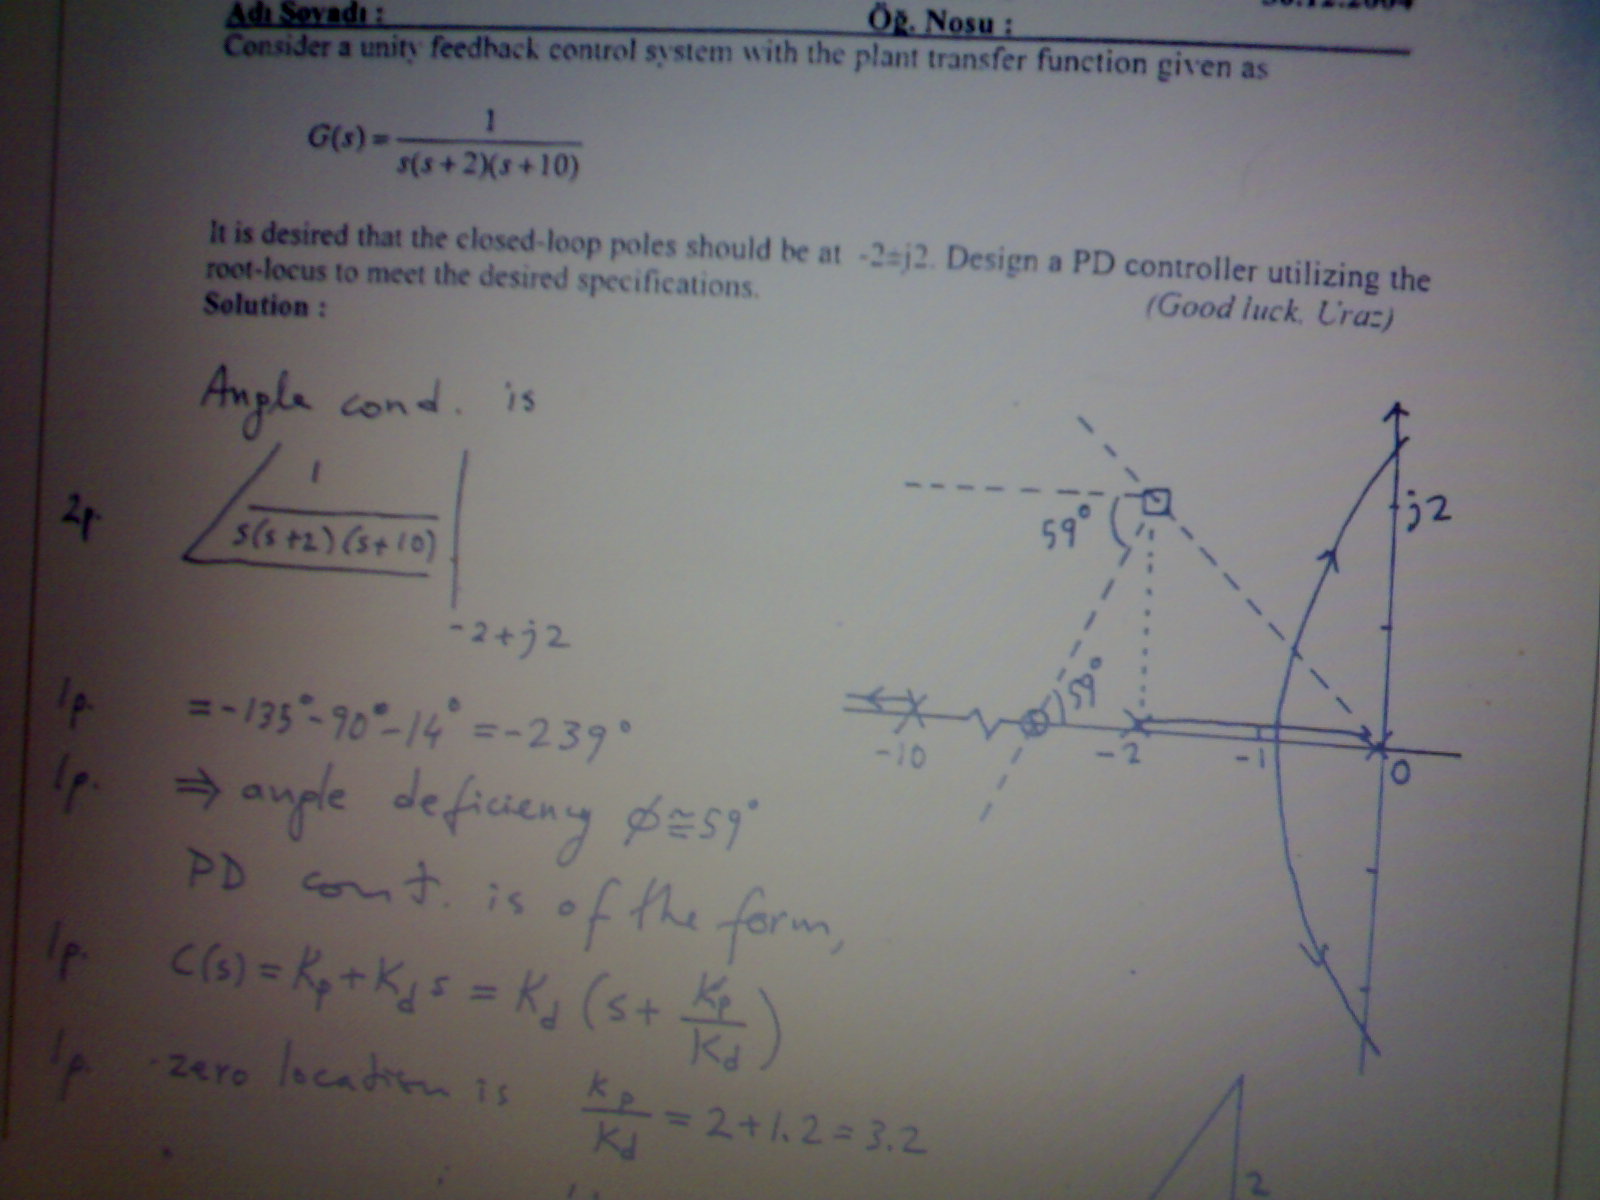 Adı Soyadı :
Öğ. Nosu :
30.12.2004
Consider a unity feedback control system with the plant transfer function given as
G(s) = 1 / s(s+2)(s+10)
It is desired that the closed-loop poles should be at -2±j2. Design a PD controller utilizing the
root-locus to meet the desired specifications.
(Good luck, Uraz)
Solution :
Angle cond. is
2p.
1
s(s+2)(s+10)
-2+j2
1p. =-135°-90°-14° =-239°
1p. ⇒ angle deficiency ϕ≅59°
PD cont. is of the form,
1p. C(s) = Kp + Kd s = Kd (s + Kp/Kd)
1p. zero location is Kp/Kd = 2+1.2 = 3.2
59°
j2
59°
-10
-2
-1
0
2